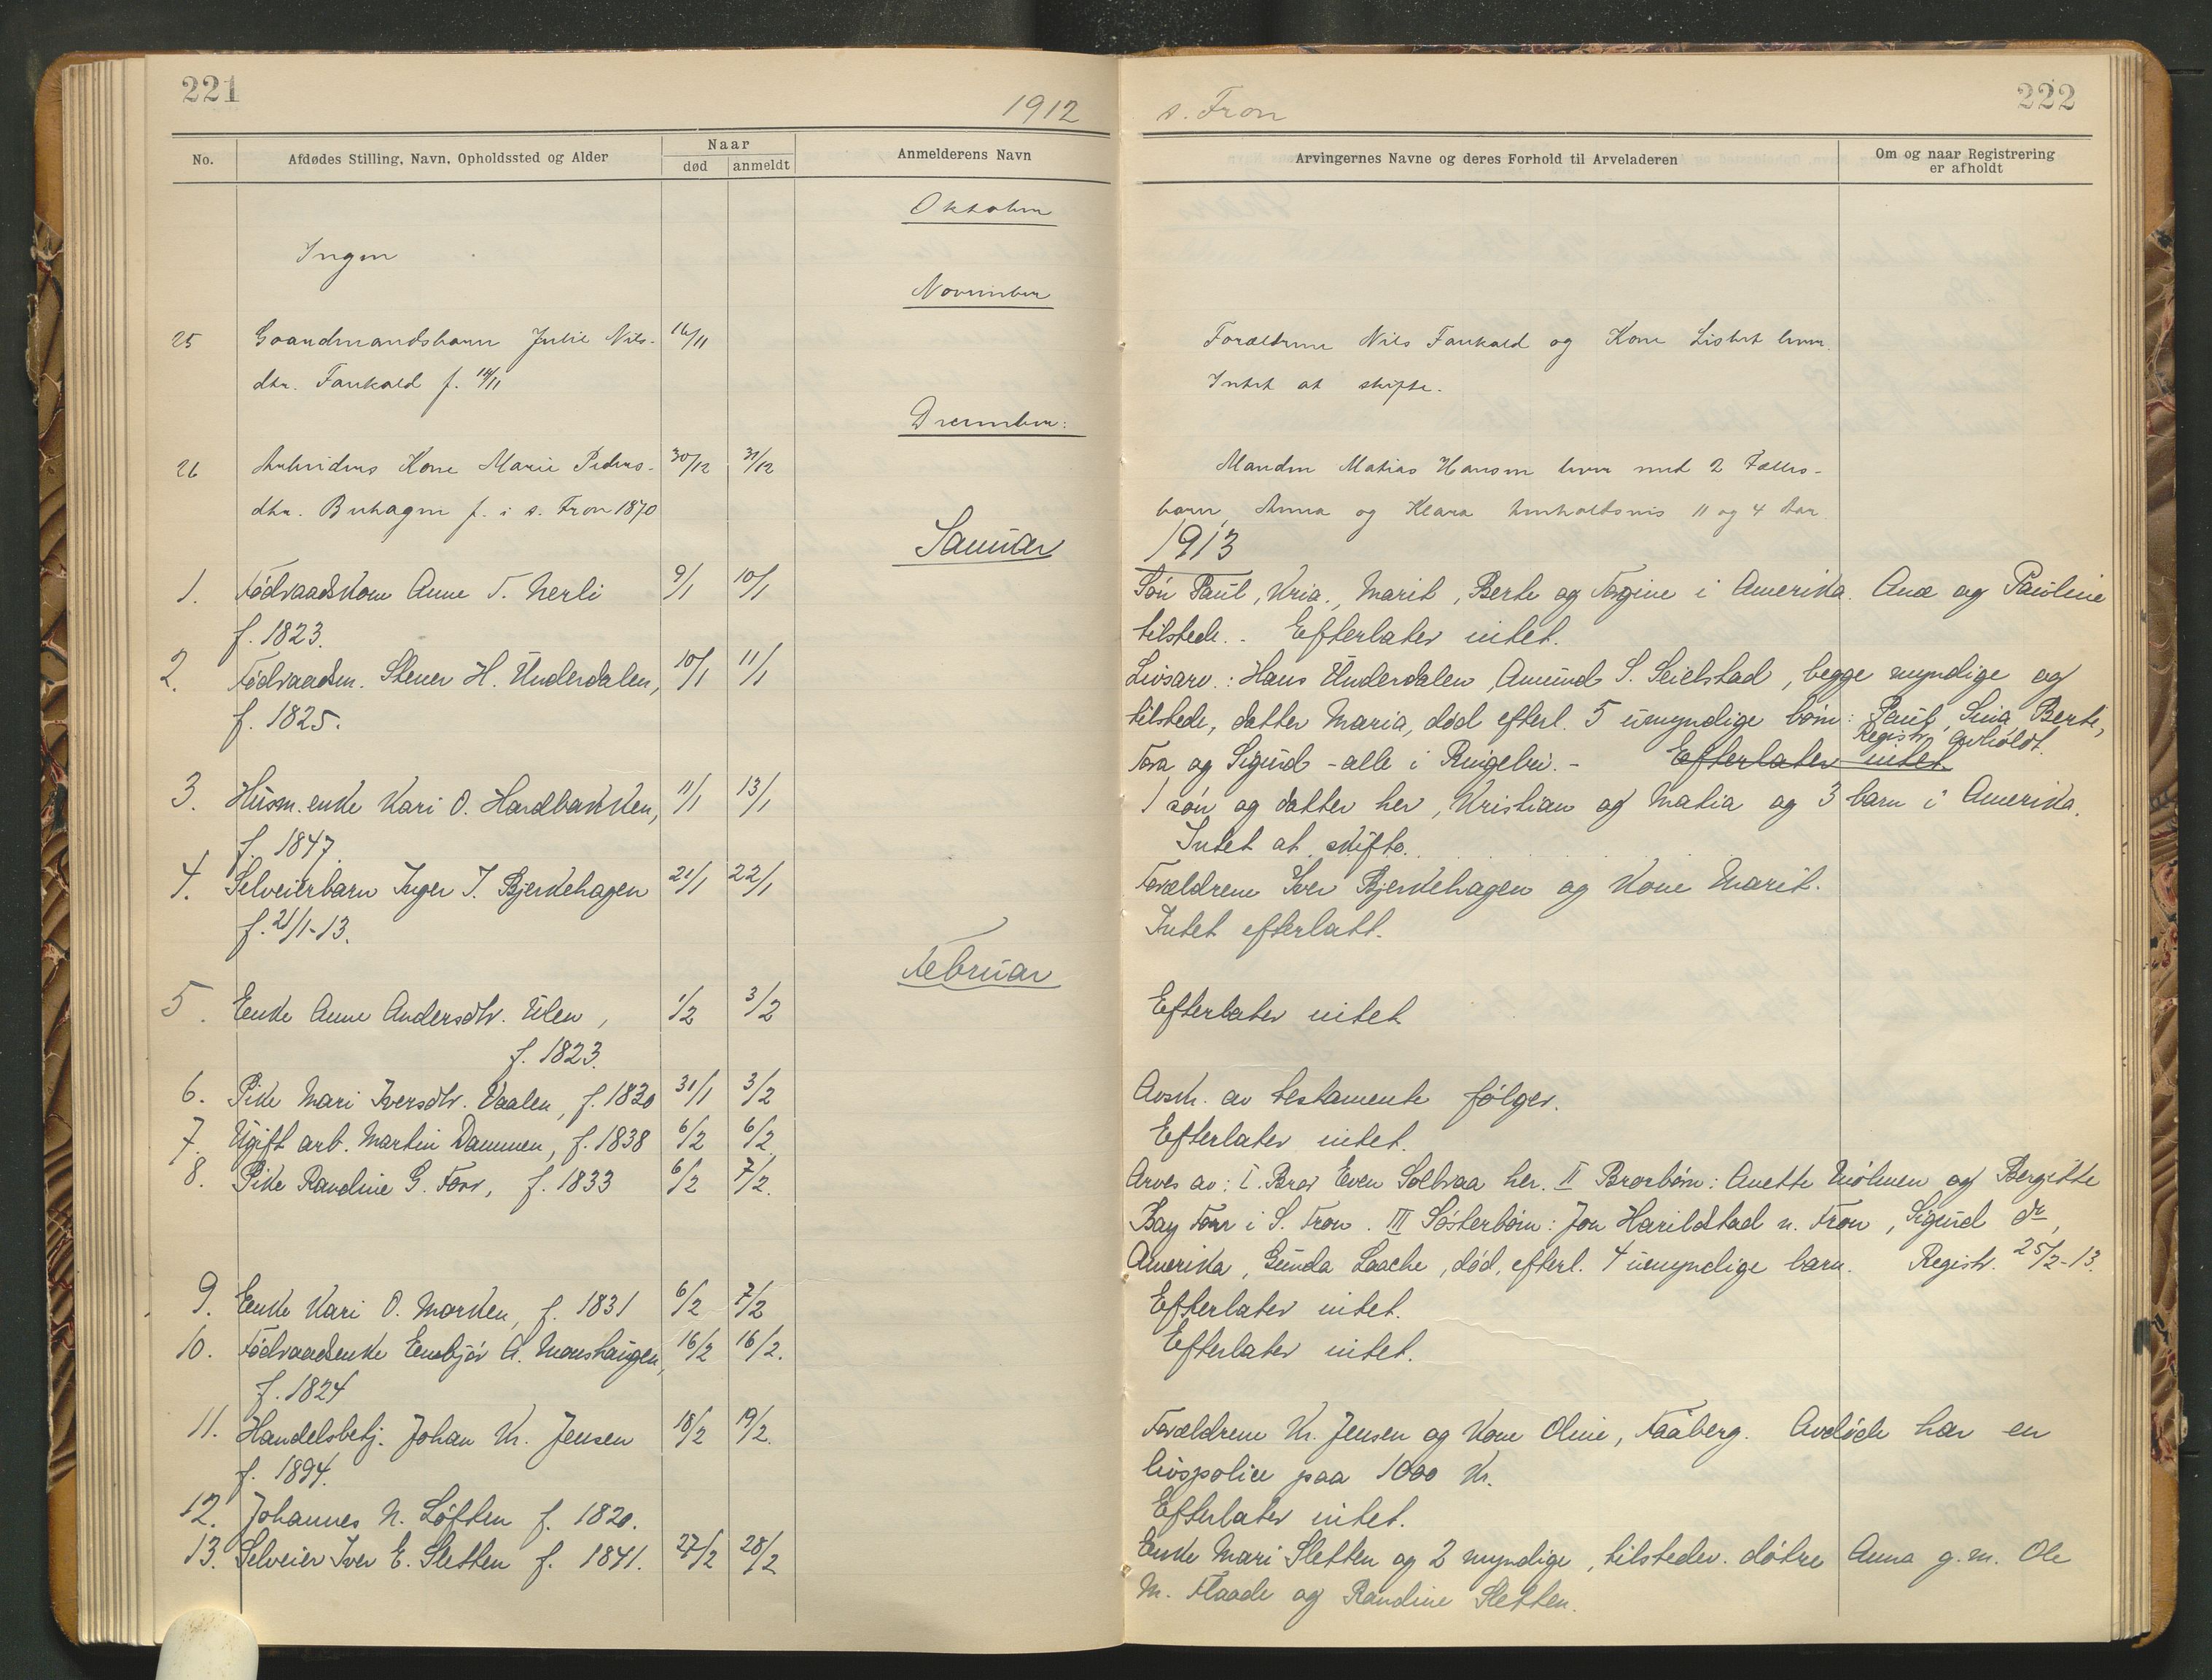 221
1912
No.
Afdødes Stilling, Navn, Opholdssted og Alder
Naar
død
anmeldt
Anmelderens Navn
Oktober
Ingen
November
25 Gaardmandsbarn Julie Nils- 16/11
dtr. Faukald f. 14/11
December:
26 Arbeiders Kone Marie Peders- 30/12 31/12
dtr. Buhagen f. i s. Fron 1870
Januar
1. Fødraadskone Anne T. Nerli 9/1 10/1
f. 1823.
2. Fødraadsm. Stener H. Underdalen, 10/1 11/1
f. 1825.
3. Husm. enke Kari O. Hardbakken, 11/1 13/1
f. 1847.
4. Selveierbarn Inger I. Bjerkehagen 21/1 22/1
f. 21/1-13.
Februar
5. Enke Anne Andersdtr. Ulen, 1/2 3/2
f. 1823.
6. Pike Mari Iversdtr. Vaalen, f. 1830 31/1 3/2
7. Ugift arb. Martin Dammen, f. 1838 6/2 6/2
8. Pike Randine G. Forr, f. 1833 6/2 7/2.
9. Enke Kari O. Marken, f. 1831 6/2 7/2
10. Fødraadsenke Embjør A. Monshaugen, 16/2 16/2.
f. 1824
11. Handelsbetj. Johan Kr. Jensen 18/2 19/2.
f. 1894.
12. Johannes N. Løften f. 1820.
13. Selveier Iver E. Sletten f. 1841. 27/2 28/2
s. Fron
222
Arvingernes Navne og deres Forhold til Arveladeren
Om og naar Registrering
er afholdt
Forældrene Nils Faukald og Kone Lisbet lever.
Intet at skifte.
Manden Matias Hansen lever med 2 Fælles-
barn, Anna og Klara henholdsvis 11 og 4 Aar
1913
Søn Paul, Kria., Marit, Berte og Torgine i Amerika. Ane og Pauline
tilstede. - Efterlater intet.
Livsarv.: Hans Underdalen, Amund S. Seielstad, begge myndige og
tilstede, datter Maria, død efterl. 5 umyndige børn: Paul, Sina, Berte,
Registr. avholdt.
Tora og Sigurd - alle i Ringebu. - Efterlater intet
1 søn og datter her, Kristian og Matia og 3 barn i Amerika.
Intet at skifte.
Forældrene Iver Bjerkehagen og Kone Marit.
Intet efterlatt.
Efterlater intet
Avsk. av testamente følger.
Efterlater intet.
Arves av: I. Bror Even Solbraa her. II Brorbørn: Anette Mølmen og Bergitte
Bay Forr i S. Fron. III Søsterbørn: Jon Harildstad n. Fron, Sigurd do,
Amerika, Gunda Laache, død, efterl. 4 umyndige barn. Registr. 25/2-13.
Efterlater intet.
Efterlater intet.
Forældrene Kr. Jensen og Kone Oline, Faaberg. Avdøde har en
livspolice paa 1000 Kr.
Efterlater intet.
Enke Mari Sletten og 2 myndige, tilstedev. døtre Anna g.m. Ole
M. Flaade og Randine Sletten.